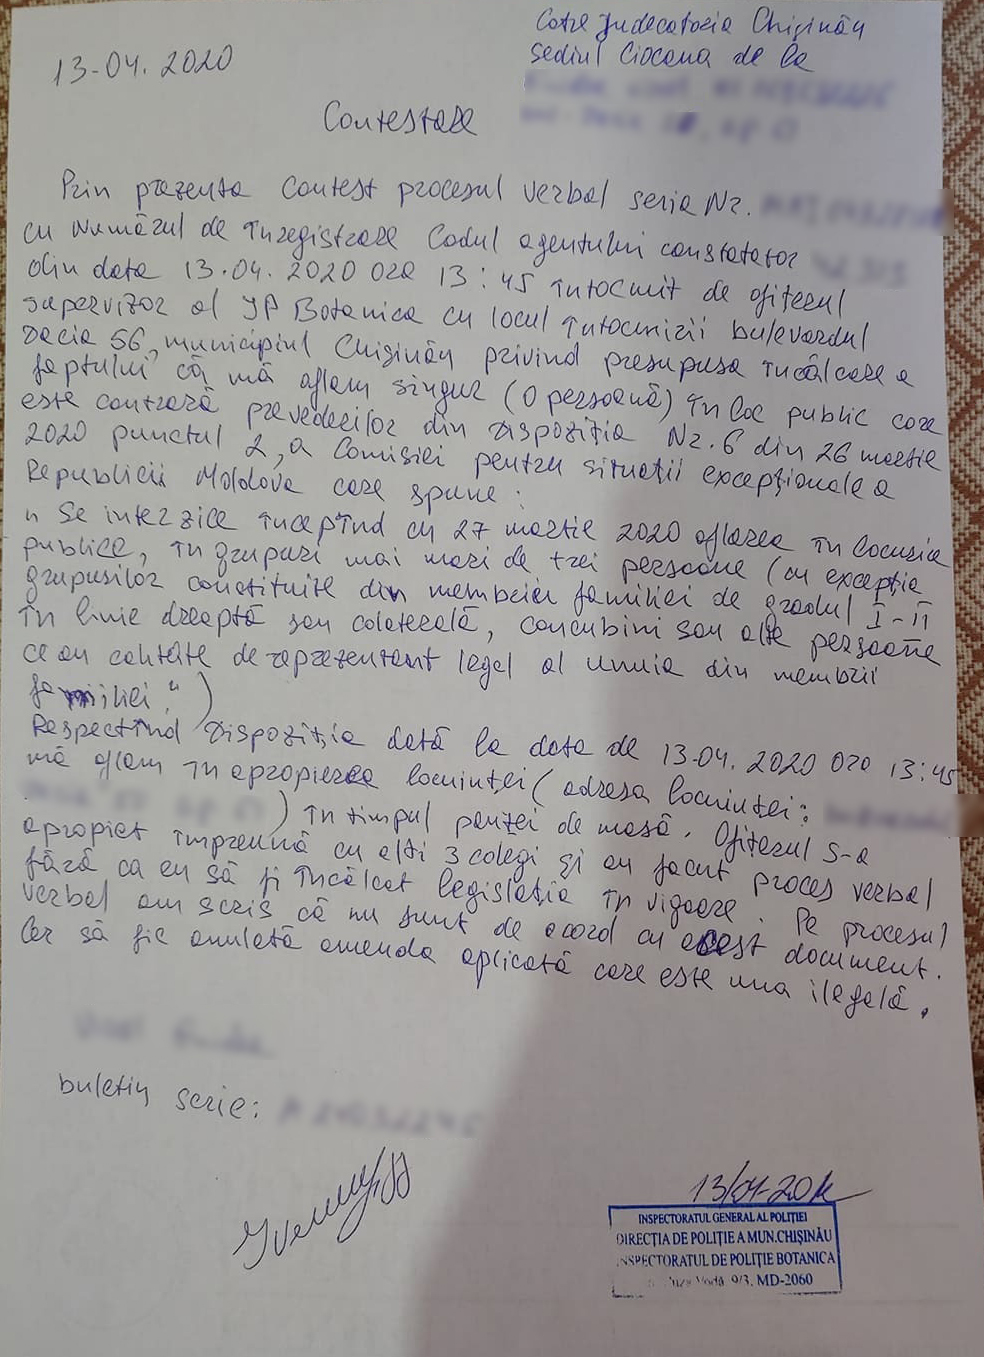 Cotre Judecatoria Chişinău
sediul Ciocana de la
13-04.2020
Contestare
Prin prezenta contest procesul verbal seria Nr.
cu numărul de înregistrare Codul agentului constatator
din data 13.04.2020 ora 13:45 întocmit de ofiţerul
supervizor al IP Botanica cu locul întocmirii bulevardul
Dacia 56, municipiul Chişinău privind presupusa încălcare a
faptului că mă aflam singur (0 persoană) în loc public care
este contrară prevederilor din Dispoziţia Nr.6 din 26 martie
2020 punctul 2, a Comisiei pentru situatii excepţionale a
Republicii Moldova care spune:
" Se interzice începînd cu 27 martie 2020 aflarea în locurile
publice, în grupuri mai mari de trei persoane (cu excepţia
grupurilor constituite din membrii familiei de gradul I-II
în linie dreaptă sau colaterală, concubini sau alte persoane
ce au calitate de reprezentant legal al unuia din membrii
familiei.")
Respectînd Dispoziţia dată la data de 13.04.2020 ora 13:45
mă aflam în apropierea locuinţei (adresa locuinţei:
) în timpul pauzei de masă. Ofiţerul s-a
apropiet împreună cu alti 3 colegi şi au facut proces verbal
fără ca eu să fi încălcat legislaţia în vigoare. Pe procesul
verbal am scris că nu sunt de acord cu acest document.
Cer să fie anulată amenda aplicată care este una ilegală.
buletin serie:
13/04-20
INSPECTORATUL GENERAL AL POLIŢIEI
DIRECŢIA DE POLIŢIE A MUN.CHIŞINĂU
INSPECTORATUL DE POLIŢIE BOTANICA
Vodă 9/3, MD-2060